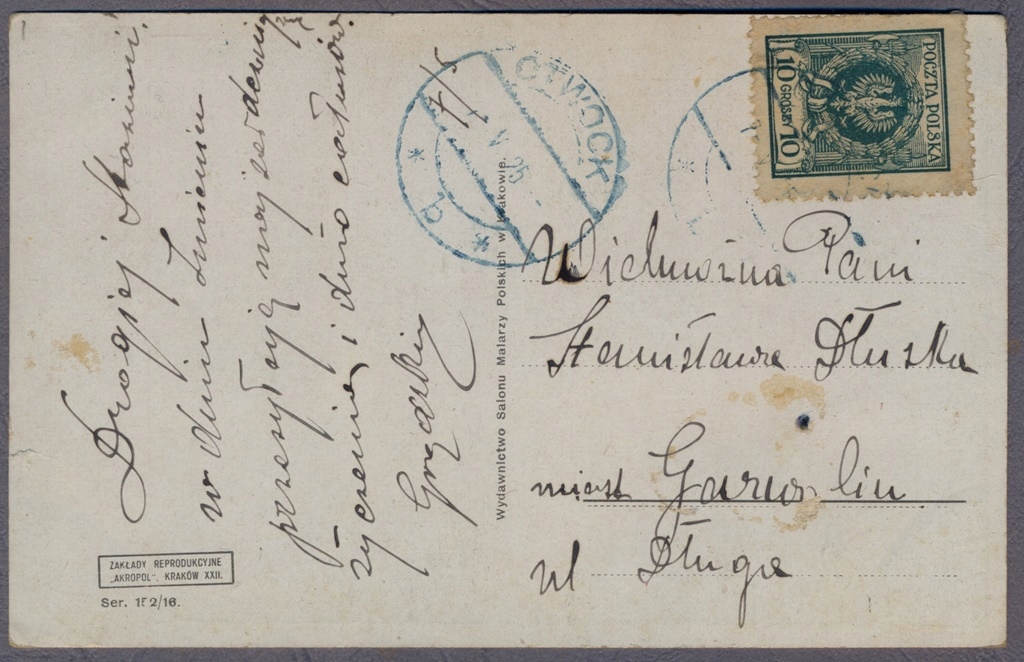 Drogiej Stasiuni
w dniu Imienin
przesyłają moj serdeczniejsze
życzenia i dużo całusów.
7/5
OTWOCK
7 V 25
POCZTA POLSKA
10 GROSZY 10
Wielmożna Pani
Stanisława Dłuska
miast Garwolin
ul Długa
Wydawnictwo Salonu Malarzy Polskich w Krakowie.
ZAKŁADY REPRODUKCYJNE
„AKROPOL“, KRAKÓW XXII.
Ser. 152/16.